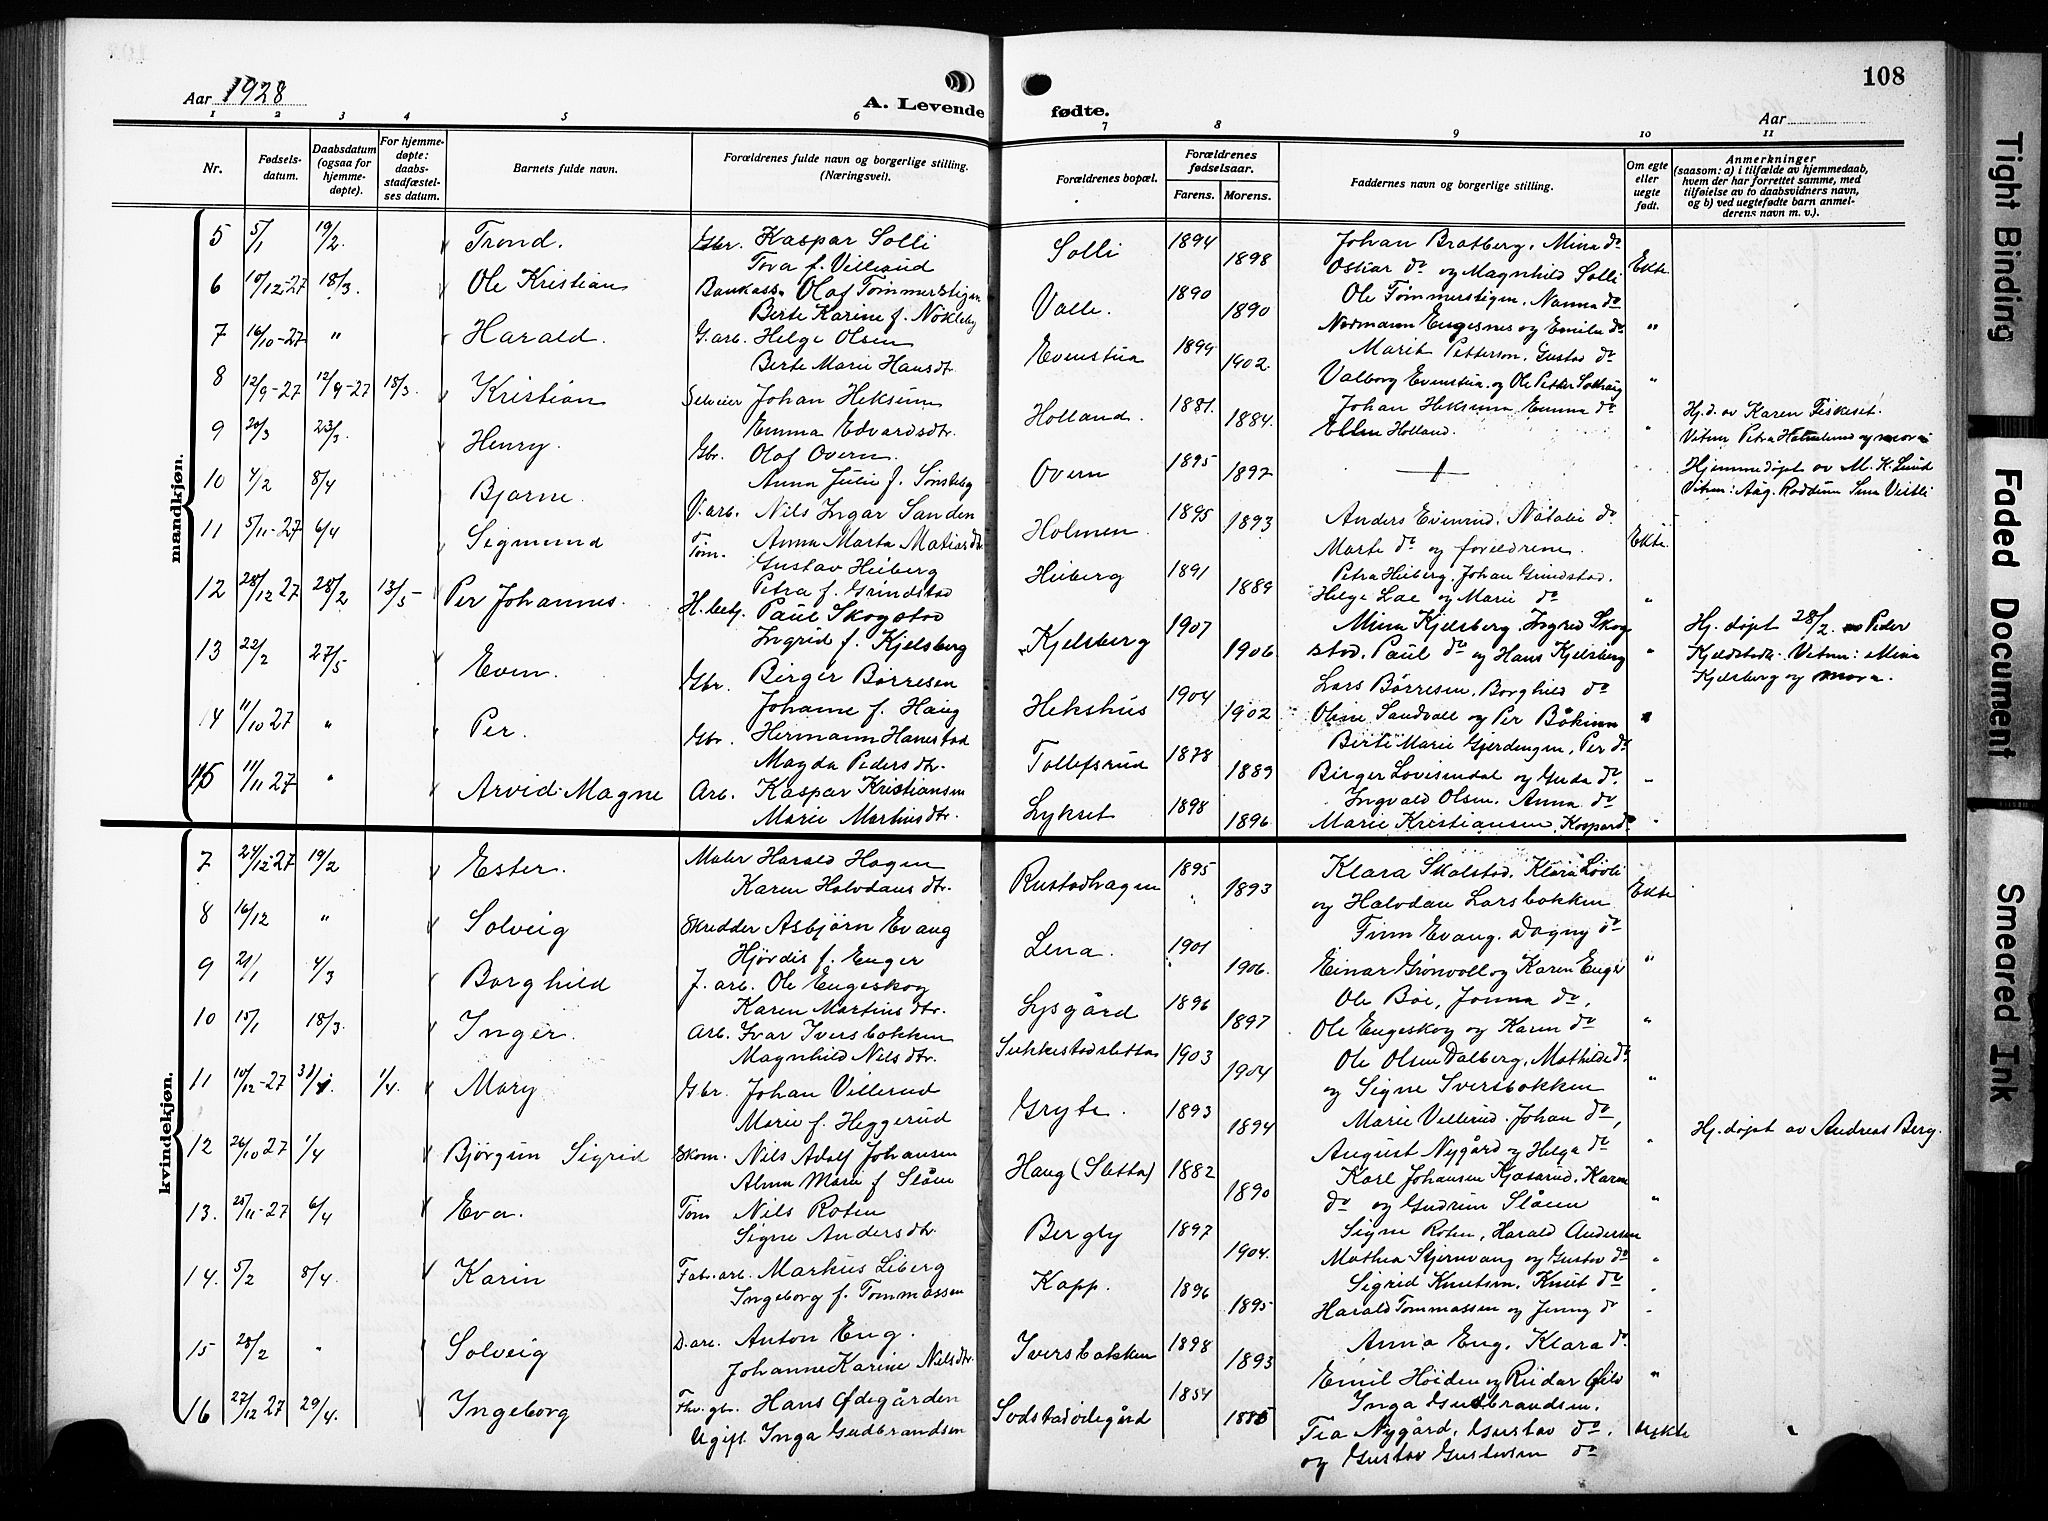 Aar 1928
A. Levende fødte.
Aar
108
1 2 3 4 5 6 7 8 9 10 11
Nr.
Fødsels-
datum.
Daabsdatum
(ogsaa for
hjemme-
døpte).
For hjemme-
døpte:
daabs-
stadfæstel-
ses datum.
Barnets fulde navn.
Forældrenes fulde navn og borgerlige stilling.
(Næringsvei).
Forældrenes bopæl.
Forældrenes
fødselsaar.
Farens. Morens.
Faddernes navn og borgerlige stilling.
Om egte
eller
uegte
født.
Anmerkninger
(saasom: a) i tilfælde av hjemmedaab,
hvem der har forrettet samme, med
tilføielse av to daabsvidners navn,
og b) ved uegtefødte barn anmel-
derens navn m. v.).
mandkjøn.
5 5/1 19/2. Trond. Gbr. Kaspar Solli Solli 1894 Johan Bratberg, Mina do
Tova f. Villerud 1898 Oskar do og Magnhild Solli Ekte
6 10/12-27 18/3. Ole Kristian Olaf Tømmerstigen Valle. 1890 Ole Tømmerstigen, Nanna do
Berte Karine f. Nøkleby 1890 Normann Engesnes og Emilie do "
7 16/10-27 " Harald. G.arb. Helge Olsen Evenstua 1899 Marit Petterson, Gustav do
Berte Marie Hansdt. 1902. Valborg Evenstua og Ole Petter "
8 12/9-27 12/9-27 18/3. Kristian Selveier Johan Heksum Holland. 1881. Johan Heksum Emma do Hj.d. av Karen Fiskeset.
Emma Edvardsdtr. 1884. Holland. " Vitner Petra og mora
9 20/3 23/3. Henry. Gbr. Olaf Overn. Overn 1895 Hjemmedøpt av M. K. Lund
Anna Julie f. Sønsteby 1892 Vitner: Aug. Roddum Sina Vestli
10 4/2 8/4 Bjarne. V.arb. Nils Ingar Sanden Holmen. 1895 Anders Evenrud, Natalie do
Anna Marta Matiasdtr 1893 Marte do og foreldrene. Ekte.
11 5/11-27 6/4 Sigmund Tøm. Gustav Heiberg Heiberg 1891 Petra Heiberg, Johan Grindstad.
Petra f. Grindstad 1889 Helge Lae og Marie do "
12 28/12 27 28/2 13/5 Per Johannes. Paul Skogstad Kjelsberg 1907 Mina Kjelsberg, Ingrid Skog Hj. døpt 28/2. Peder
Ingrid f. Kjelsberg 1906 stad, Paul do og Hans Kjelsberg " Vitner: Mina
Kjelsberg og mora.
13 22/2 27/5 Even. Gbr. Birger Børresen Hekshus 1904 Lars Børresen, Borghild do
Johanne f. Haug 1902 Oline Sandvoll og Per "
14 11/10 27 " Per. Gbr. Hermann Hanestad Tollefsrud 1878 Berte Marie Gjerdingen, Per do
Magda Pedersdtr. 1889 Birger Lovisendal og Gerda do "
15 11/11 27 " Arvid Magne Arb. Kaspar Kristiansen Lykset 1898 Ingvald Olsen, Anna do
Marie Martinsdtr. 1896 Marie Kristiansen, Kaspar do "
kvindekjøn.
7 24/12-27 19/2 Ester. Maler Harald Hagen Rustadhagen 1895 Klara Skolstad, Klara Løvli
Karen Halvdansdtr. 1893 og Halvdan Larsbakken Ekte
8 16/12 " Solveig Skredder Asbjørn Evang Lena. 1901 Evang, Dagny do
Hjørdis f. Enger 1906. Einar Grønvoll og Karen Enger "
9 21/1 4/3 Borghild J. arb. Ole Engeskog Lysgård 1896 Ole Bøe, Jonna do,
Karen Martinsdtr. 1897 Ole Engeskog og Karen do "
10 15/1 18/3. Inger. Arb. Ivar Iversbakken Sukkestadsletta 1903 Ole Olsen Dalberg, Mathilde do
Magnhild Nilsdtr. 1904 og Signe Iversbakken "
11 10/12-27 1/4. Mary Gbr. Johan Villerud Gryte. 1893 Marie Villerud, Johan do,
Marie f. Heggerud 1894 August Nygård og Helga do " Hj. døpt av Andreas Berg.
12 26/10 27 1/4 Bjørgun Sigrid Skom. Nils Adolf Johansen Haug (Sletta) 1882 Karl Johansen Kjøsrud, Karen
Alma Marie f Slåen 1890 do og Gudrun Slåen "
13. 25/11-27 6/4 Eva. Tøm Nils Roten Bergly 1897 Signe Roten, Harald Andersen
Signe Andersdtr. 1904. Mathea Stjernvang og Gustav do "
14. 5/2 8/4. Karin Fab.arb. Markus Liberg Kapp. 1896 Sigrid Knutsen, Knut do
Ingeborg f. Tommassen 1895 Harald Tommassen og Jenny do "
15 28/2 " Solveig D.arb. Anton Eng. Iversbakken 1898 Anna Eng, Klara do
Johanne Karine Nilsdtr. 1893 Emil Høiden og Reidar "
16 27/12 27 29/4. Ingeborg Fhv. gbr. Hans Ødegården Sodstadødegård 1854 Inga Gudbrandsen.
Ugift Inga Gudbrandsen 1885 Tea Nygård, Gustav do. uekte
og Gustav Gustavsen do
Tight Binding
Faded Document
Smeared Ink